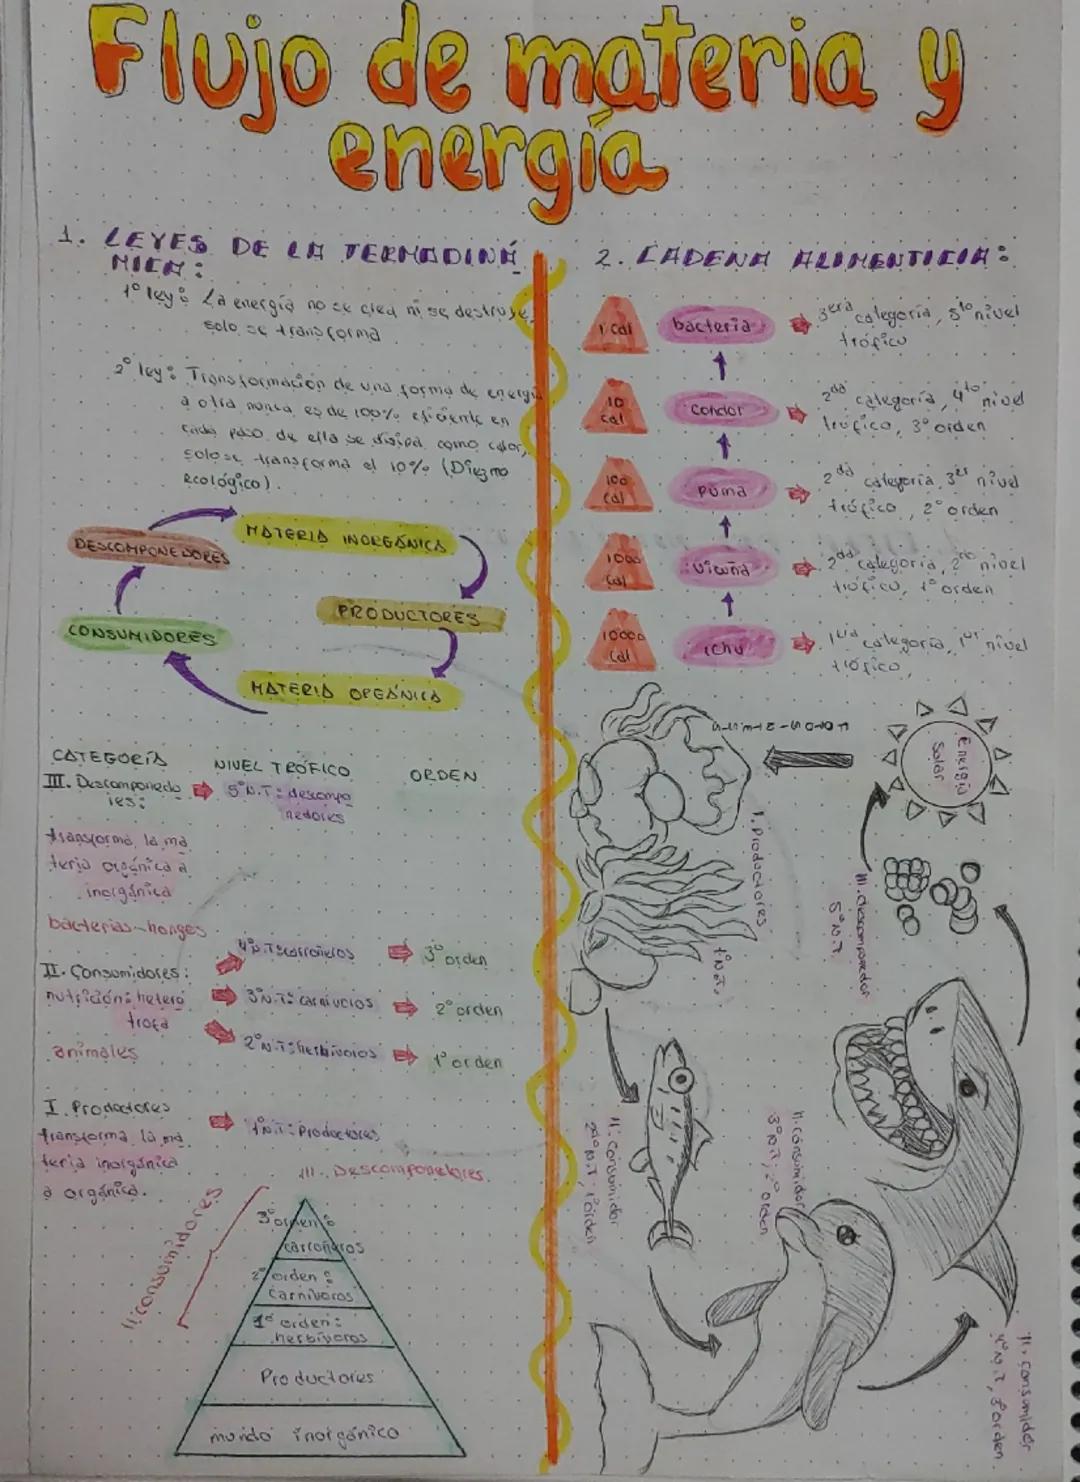 Flujo de materia y
energía
1. LEYES DE LA TERMODINÁ
MICA:
1° ley: La energía no se crea ni se destruye,
solo se transforma
2° ley: Transformación de una forma de energía
a otra nunca es de 100% eficiente en
cada paso de ella se disipa como calor,
solo se transforma el 10% (Diezmo
ecológico).
DESCOMPONEDORES
MATERIA INORGÁNICA
PRODUCTORES
CONSUMIDORES
MATERIA ORGÁNICA
CATEGORÍA
NIVEL TRÓFICO
ORDEN
III. Descomponedo
res:
5° N.T: descompo
nedores
transforma la ma
teria orgánica a
inorgánica
bacterias-hongos
II. Consumidores:
nutrición: heteró
trofa
animales
4° N.T: carroñeros
3° orden
3° N.T: carnívoros
2° orden
2° N.T: herbívoros
1° orden
I. Productores
transforma la ma
teria inorgánica
a orgánica.
1° N.T: Productores
III. Descomponedores
II. consumidores
3° orden:
carroñeros
2° orden:
carnívoros
1° orden:
herbívoros
Productores
mundo inorgánico
2. CADENA ALIMENTICIA:
1 cal
bacteria
3era categoría, 5to nivel
trófico
10
cal
Condor
2da categoría, 4to nivel
trófico, 3° orden
100
cal
puma
2da categoría, 3er nivel
trófico, 2° orden
1000
cal
vicuña
2da categoría, 2do nivel
trófico, 1° orden
10000
cal
ichu
1era categoría, 1er nivel
trófico,
Energía
Solar
I. Productores
1° N.T.
III. descomponedor
5° N.T.
II. consumidor
2do N.T, 1° orden
II. consumidor
3° N.T, 2° orden
II. consumidor
4° N.T, 3° orden